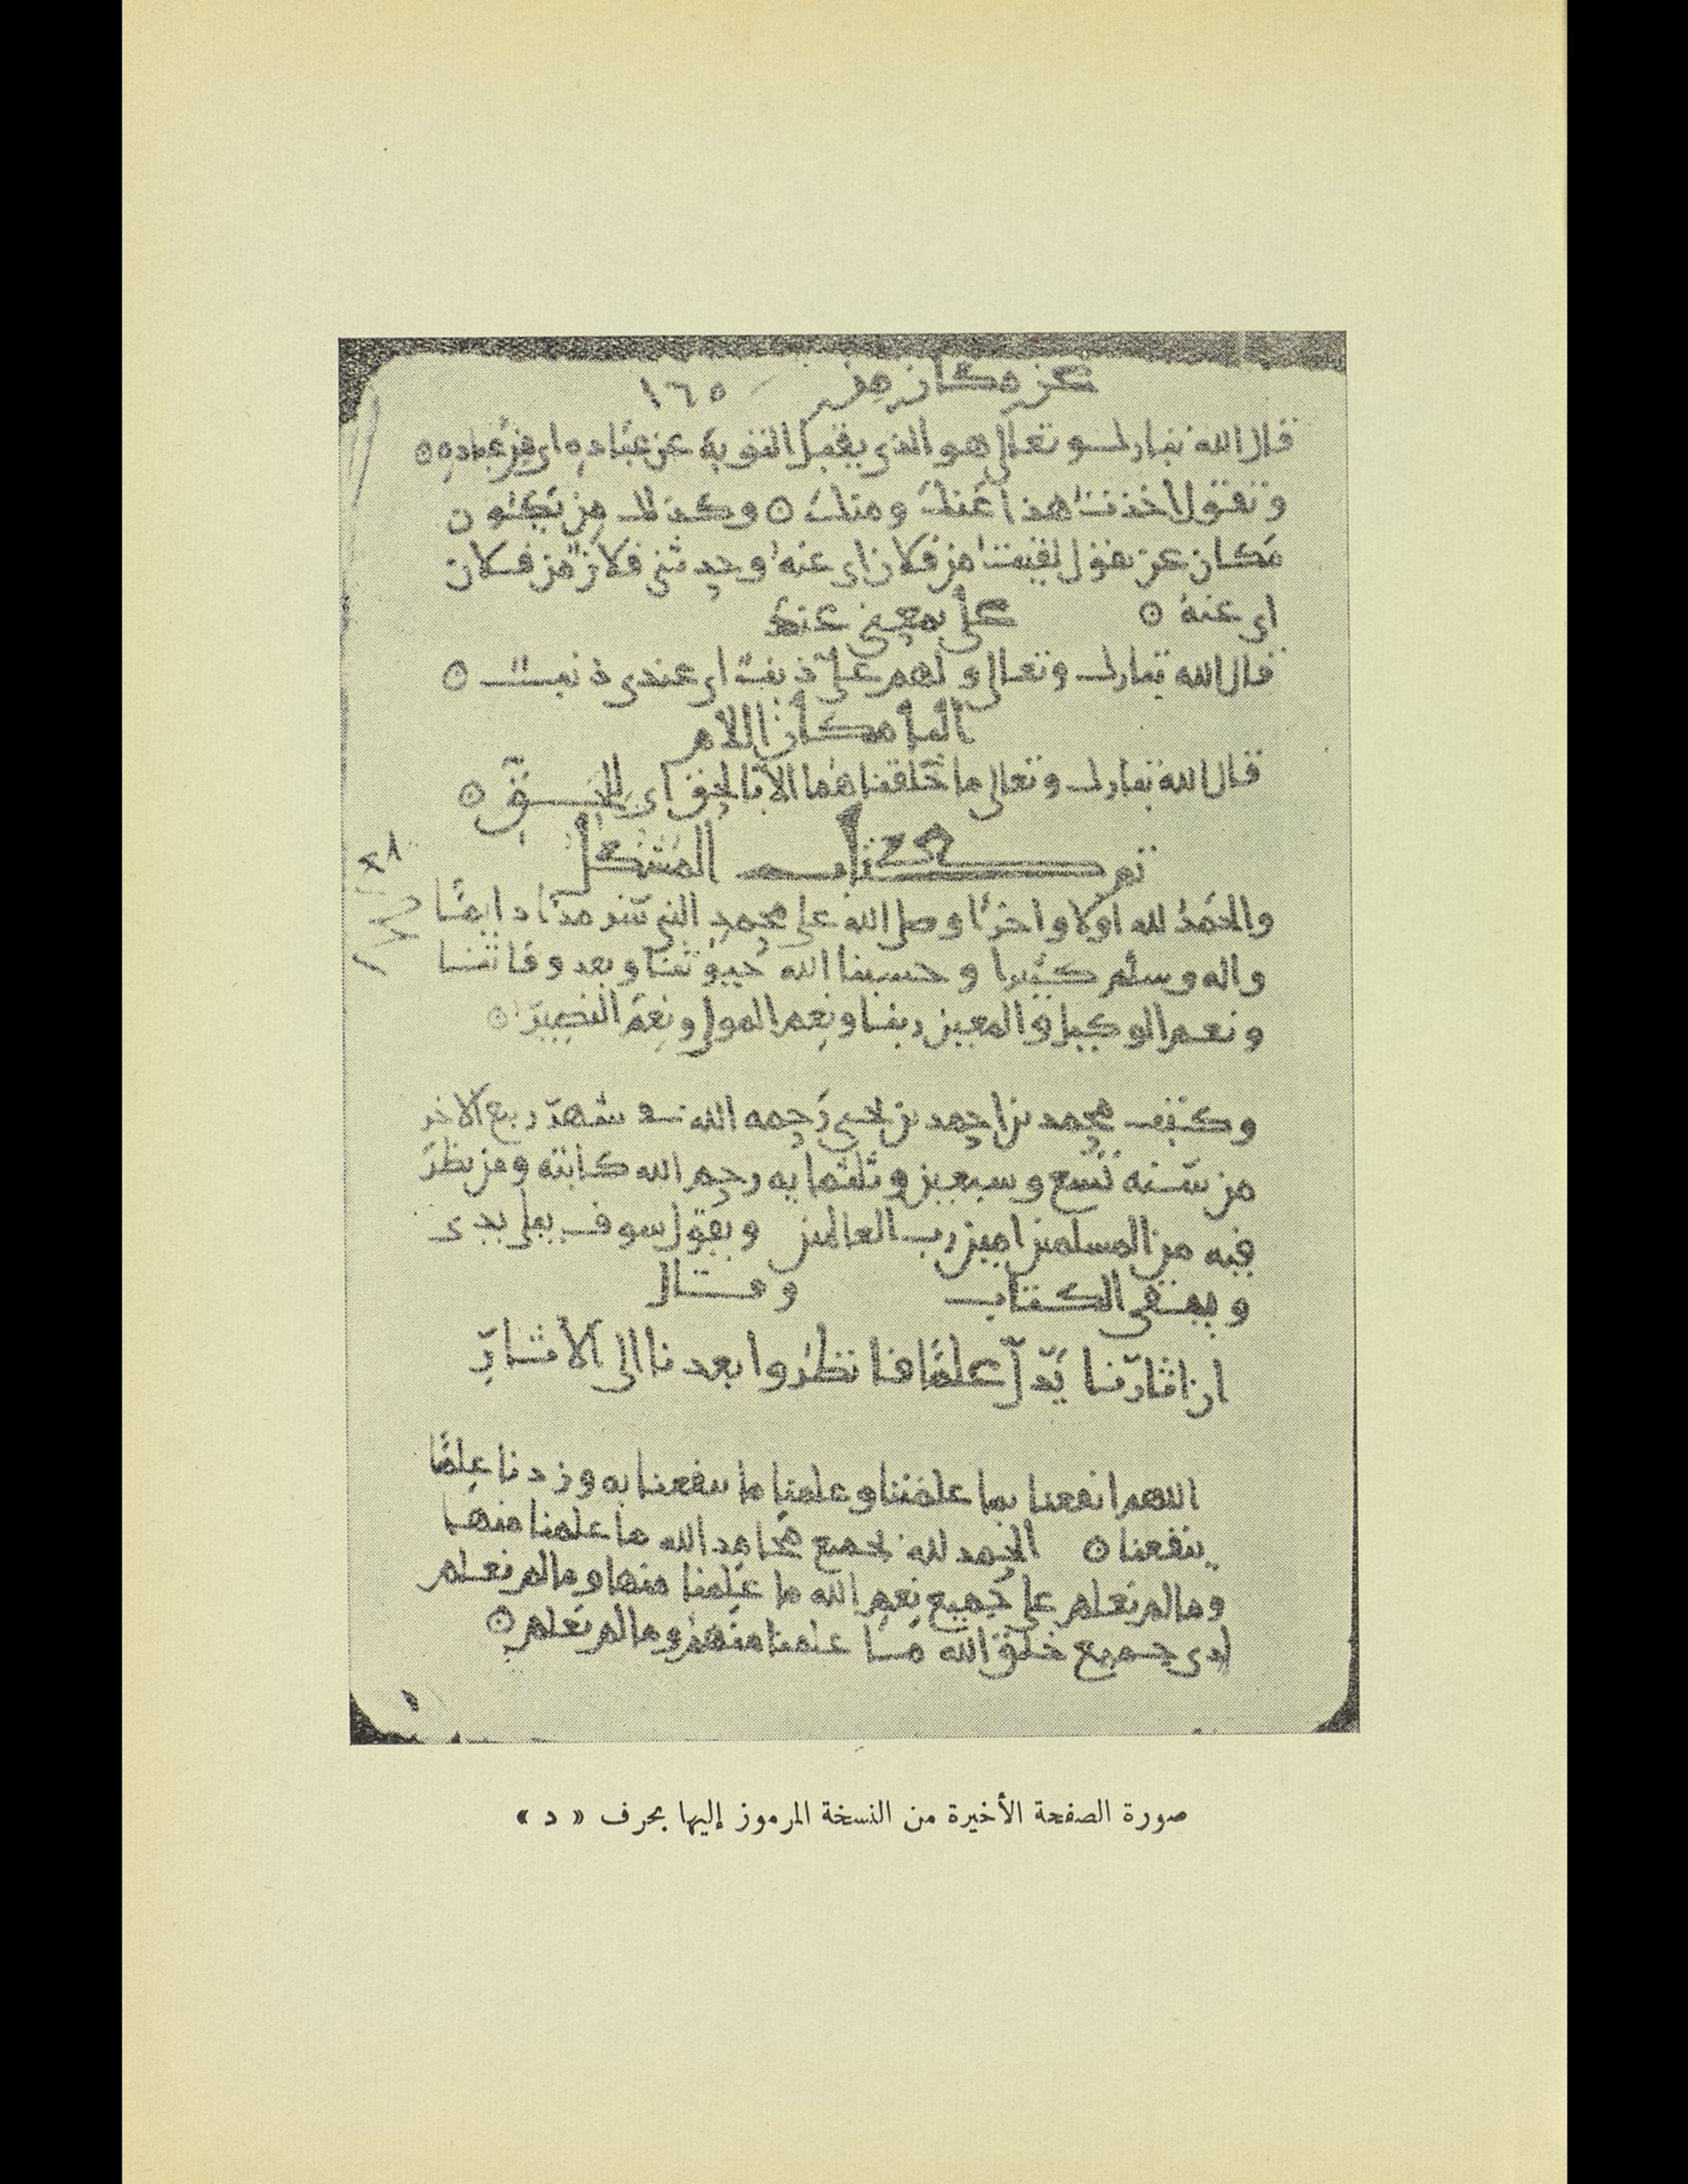 عن مكان من ١٦٥
قال الله تبارك وتعالى هو الذي يقبل التوبة عن عباده اى من عباده ۞
وتقول اخذت هذا عنك ومنك ۞ وكذلك من تكون
مكان عن تقول لقيت من فلان اى عنه وحدثنى فلان من فلان
اى عنه ۞ على بمعنى عند
قال الله تبارك وتعالى ولهم على ذنب اى عندى ذنب ۞
البا مكان اللام
قال الله تبارك وتعالى ما خلقناهما الا بالحق اى للحق ۞
تم كتاب المشكل
والحمد لله اولا واخرا وصلى الله على محمد النبى دايما
واله وسلم كثيرا وحسبنا الله حيوتنا وبعد وفاتنا
ونعم الوكيل والمعين ربنا ونعم المولى ونعم النصير ۞
وكتب محمد بن احمد بن يحيى رحمه الله فى شهر ربيع الاخر
من سنة تسع وسبعين وثلثمايه رحم الله كاتبه ومن نظر
فيه من المسلمين امين رب العالمين ويقول سوف يبلى يدى
ويبقى الكتاب وقال
ان اثارنا تدل علينا فانظروا بعدنا الى الاثار
اللهم انفعنا بما علمتنا وعلمنا ما ينفعنا به وزدنا علما
ينفعنا ۞ الحمد لله بجميع محامد الله ما علمنا منها
وما لم نعلم على جميع نعم الله ما علمنا منها وما لم نعلم
جميع خلق الله ما علمنا منهم وما لم نعلم ۞
صورة الصفحة الأخيرة من النسخة المرموز إليها بحرف « د »